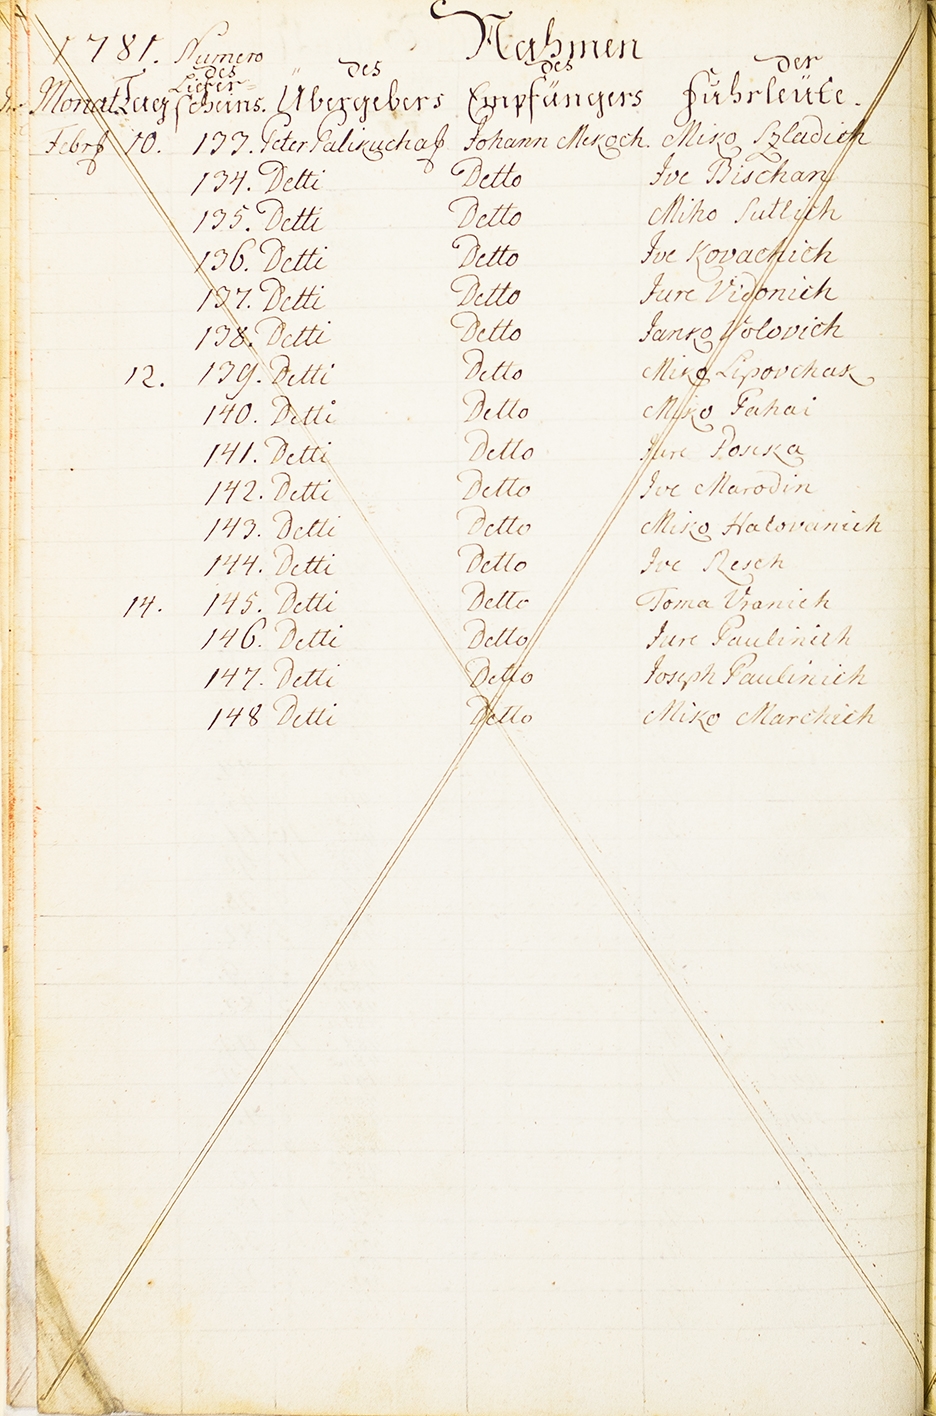 1781. Numero Nahmen
des des des der
Monat Tag Liefer=
scheins. Übergebers Empfängers Fuhrleüte.
Febr 10. 133. Peter Johann Mikoch. Miko Szladich
134. Detti Detto Ive Bischan
135. Detti Detto Miho Sutlich
136. Detti Detto Ive Kovachich
137. Detti Detto Jure Vidonich
138. Detti Detto Janko Volovich
12. 139. Detti Detto Miko Lipovchak
140. Detti Detto Miko Fahai
141. Detti Detto Jure
142. Detti Detto Ive Marodin
143. Detti Detto Miko Halovanich
144. Detti Detto Ive Resch
14. 145. Detti Detto Toma Vranich
146. Detti Detto Jure Paulinich
147. Detti Detto Joseph Paulinich
148 Detti Detto Miko Marchich